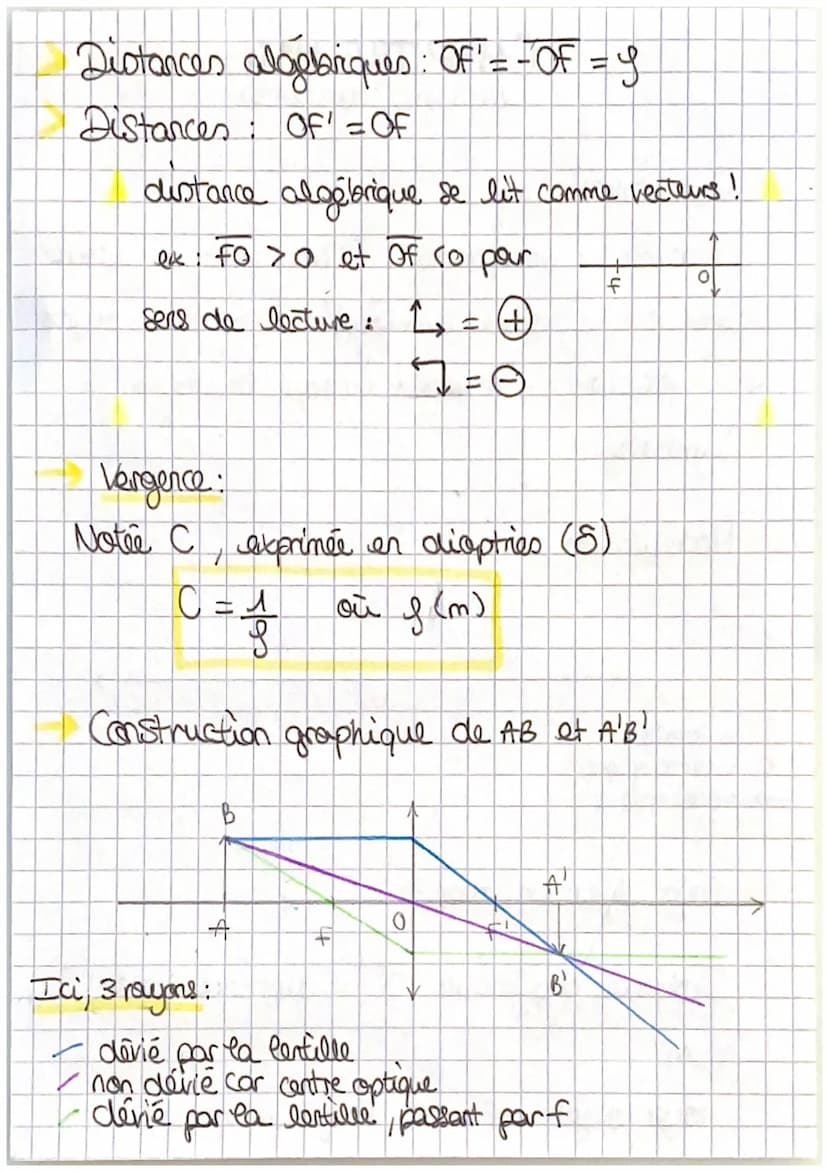 Distances algébriques : OF' = -OF = f
Distances : OF' = OF
distance algébrique se lit comme vecteurs !
ex : FO > 0 et OF < 0 pour
F O
sens de lecture : ↳ = +
↰ = -
→ Vergence :
Notée C, exprimée en dioptries (δ)
C = 1/f où f (m)
→ Construction graphique de AB et A'B'
B
A'
A F O F'
B'
Ici, 3 rayons :
dévié par la lentille
non dévié car centre optique
dévié par la lentille, passant par F